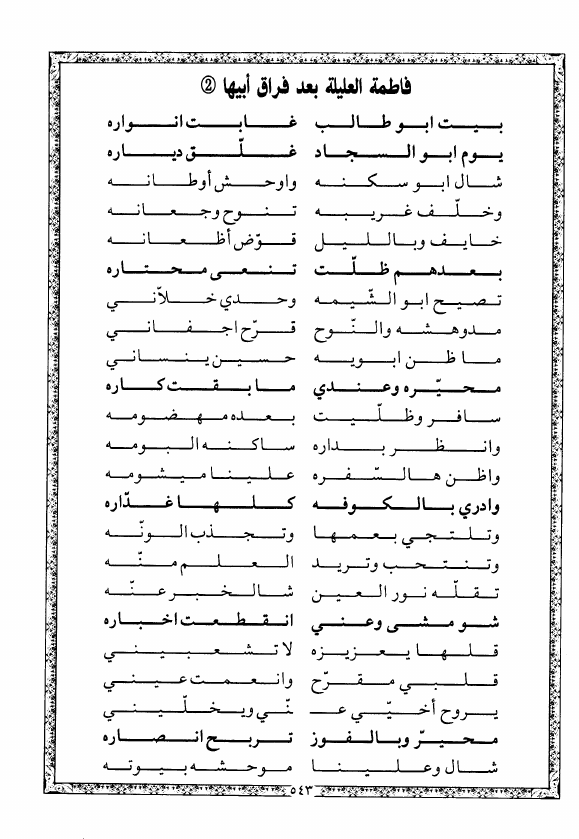 فاطمة العليلة بعد فراق أبيها ②
بيت ابو طالب غابت انواره
يوم ابو السجاد غلّق دياره
شال ابو سكنه واوحش أوطانه
وخلّف غريبه تنوح وجعانه
خايف وبالليل قوّض أظعانه
بعدهم ظلّت تنعى محتاره
تصيح ابو الشّيمه وحدي خلاّني
مدوهشه والنّوح قرّح اجفاني
ما ظن ابويه حسين ينساني
محيّره وعندي ما بقت كاره
سافر وظلّيت بعده مهضومه
وانظر بداره ساكنه البومه
واظن هالسّفره علينا ميشومه
وادري بالكوفه كلها غدّاره
وتلتجي بعمها وتجذب الونّه
وتنتحب وتريد العلم منّه
تقلّه نور العين شالخبر عنّه
شو مشى وعني انقطعت اخباره
قلها يعزيزه لا تشعبيني
قلبي مقرّح وانعمت عيني
يروح أخيّي عـ نّي ويخلّيني
محيّر وبالفوز تربح انصاره
شال وعلينا موحشه بيوته
٥٤٣